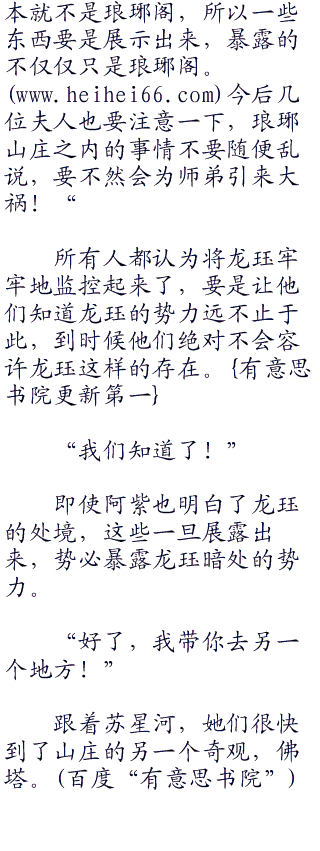 本就不是琅琊阁，所以一些
东西要是展示出来，暴露的
不仅仅只是琅琊阁。
(www.heihei66.com)今后几
位夫人也要注意一下，琅琊
山庄之内的事情不要随便乱
说，要不然会为师弟引来大
祸！“
所有人都认为将龙珏牢
牢地监控起来了，要是让他
们知道龙珏的势力远不止于
此，到时候他们绝对不会容
许龙珏这样的存在。{有意思
书院更新第一}
“我们知道了！”
即使阿紫也明白了龙珏
的处境，这些一旦展露出
来，势必暴露龙珏暗处的势
力。
“好了，我带你去另一
个地方！”
跟着苏星河，她们很快
到了山庄的另一个奇观，佛
塔。(百度“有意思书院”)